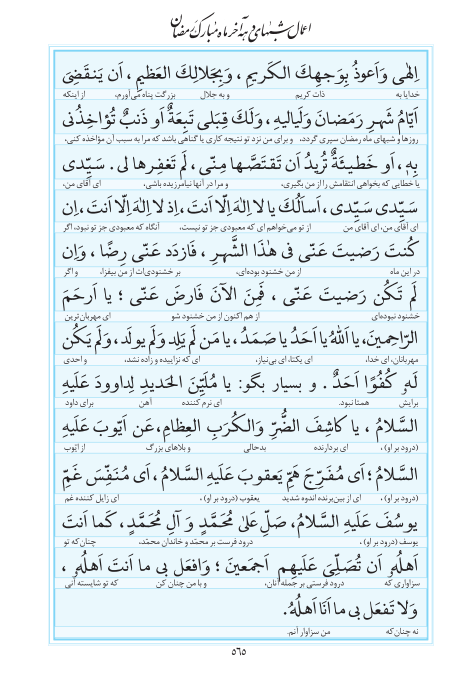 اعمال شبهای دهه آخر ماه مبارک رمضان
اِلٰهی وَاَعوذُ بِوَجهِكَ الكَریمِ ، وَبِجَلالِكَ العَظیمِ ، اَن یَنقَضِیَ
خدایا به ذات کریم و به جلال بزرگت پناه می‌آورم، از اینکه
اَیّامُ شَهرِ رَمَضانَ وَلَیالیهِ ، وَلَكَ قِبَلی تَبِعَةٌ اَو ذَنبٌ تُؤاخِذُنی
روزها و شبهای ماه رمضان سپری گردد، و برای من نزد تو نتیجه کاری یا گناهی باشد که مرا به سبب آن مؤاخذه کنی،
بِهِ ، اَو خَطیـئَةٌ تُریدُ اَن تَقتَصَّها مِنّی ، لَم تَغفِرها لی . سَیِّدی
یا خطایی که بخواهی انتقامش را از من بگیری، و مرا در آنها نیامرزیده باشی، ای آقای من،
سَیِّدی سَیِّدی ، اَساَلُكَ یا لا اِلٰهَ اِلّا اَنتَ ، اِذ لا اِلٰهَ اِلّا اَنتَ ، اِن
ای آقای من، ای آقای من از تو می‌خواهم ای که معبودی جز تو نیست، آنگاه که معبودی جز تو نبود، اگر
كُنتَ رَضیتَ عَنّی فی هٰذَا الشَّهرِ ، فَازدَد عَنّی رِضًا ، وَاِن
در این ماه از من خشنود بوده‌ای، بر خشنودی‌ات از من بیفزا، و اگر
لَم تَكُن رَضیتَ عَنّی ، فَمِنَ الآنَ فَارضَ عَنّی ؛ یا اَرحَمَ
خشنود نبوده‌ای از هم اکنون از من خشنود شو ای مهربان‌ترین
الرّاحِمینَ، یا اَللهُ یا اَحَدُ یا صَمَدُ ، یا مَن لَم یَلِد وَلَم یولَد ، وَلَم یَكُن
مهربانان، ای خدا، ای یکتا، ای بی‌نیاز، ای که نزاییده و زاده نشد، و احدی
لَهُ كُفُوًا اَحَدٌ . و بسیار بگو: یا مُلَیِّنَ الحَدیدِ لِداوودَ عَلَیهِ
برایش همتا نبود. ای نرم کننده آهن برای داود
السَّلامُ ، یا كاشِفَ الضُّرِّ وَالكُرَبِ العِظامِ، عَن اَیّوبَ عَلَیهِ
(درود بر او) ، ای بردارنده بدحالی و بلاهای بزرگ از ایّوب
السَّلامُ ؛ اَی مُفَرِّجَ هَمِّ یَعقوبَ عَلَیهِ السَّلامُ ، اَی مُنَفِّسَ غَمِّ
(درود بر او) ، ای از بین‌برنده اندوه شدید یعقوب (درود بر او) ، ای زایل کننده غم
یوسُفَ عَلَیهِ السَّلامُ، صَلِّ عَلىٰ مُحَمَّدٍ وَ آلِ مُحَمَّدٍ ، كَما اَنتَ
یوسف (درود بر او) ، درود فرست بر محمّد و خاندان محمّد، چنان‌که تو
اَهلُهُ اَن تُصَلِّیَ عَلَیهِم اَجمَعینَ ؛ وَافعَل بی ما اَنتَ اَهلُهُ ،
سزاواری که درود فرستی بر جمله آنان، و با من چنان کن که تو شایسته آنی
وَلا تَفعَل بی ما اَنَا اَهلُهُ.
نه چنان‌که من سزاوار آنم.
٥٦٥